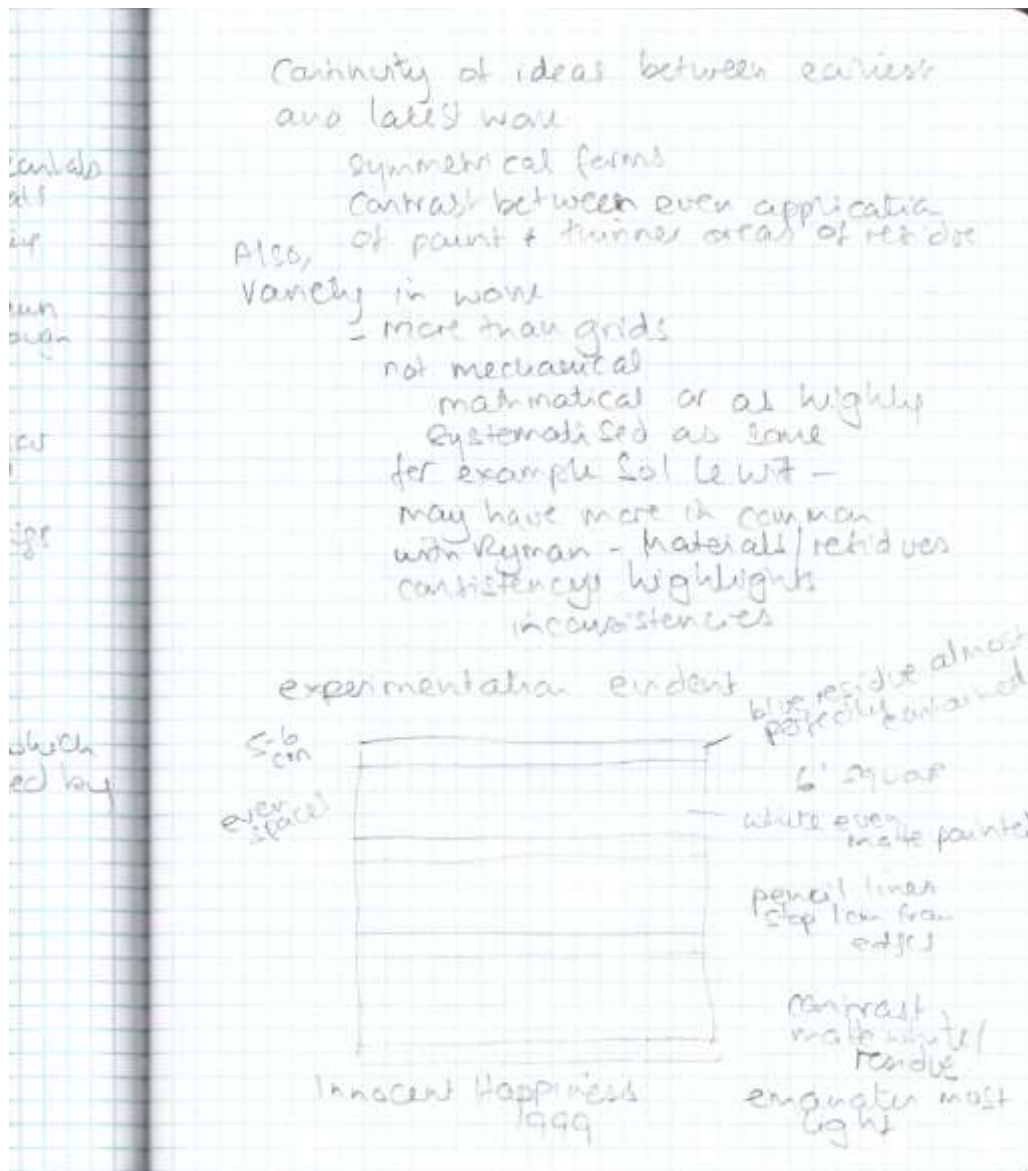 Continuity of ideas between earliest
and latest work
symmetrical forms
contrast between even application
of paint + thinner areas of residue
Also,
Variety in work
- more than grids
not mechanical
mathmatical or as highly
systematised as some
for example Sol LeWit -
may have more in common
with Ryman - Materials/residues
consistencys highlights
inconsistencies
experimentation evident
blue residue almost
perfectly contained
5-6
cm
6' square
even
spaces
white even
matte painted
pencil lines
stop 1cm from
edges
contrast
matte white/
residue
emanates most
light
Innocent Happiness
1999
which
ed by